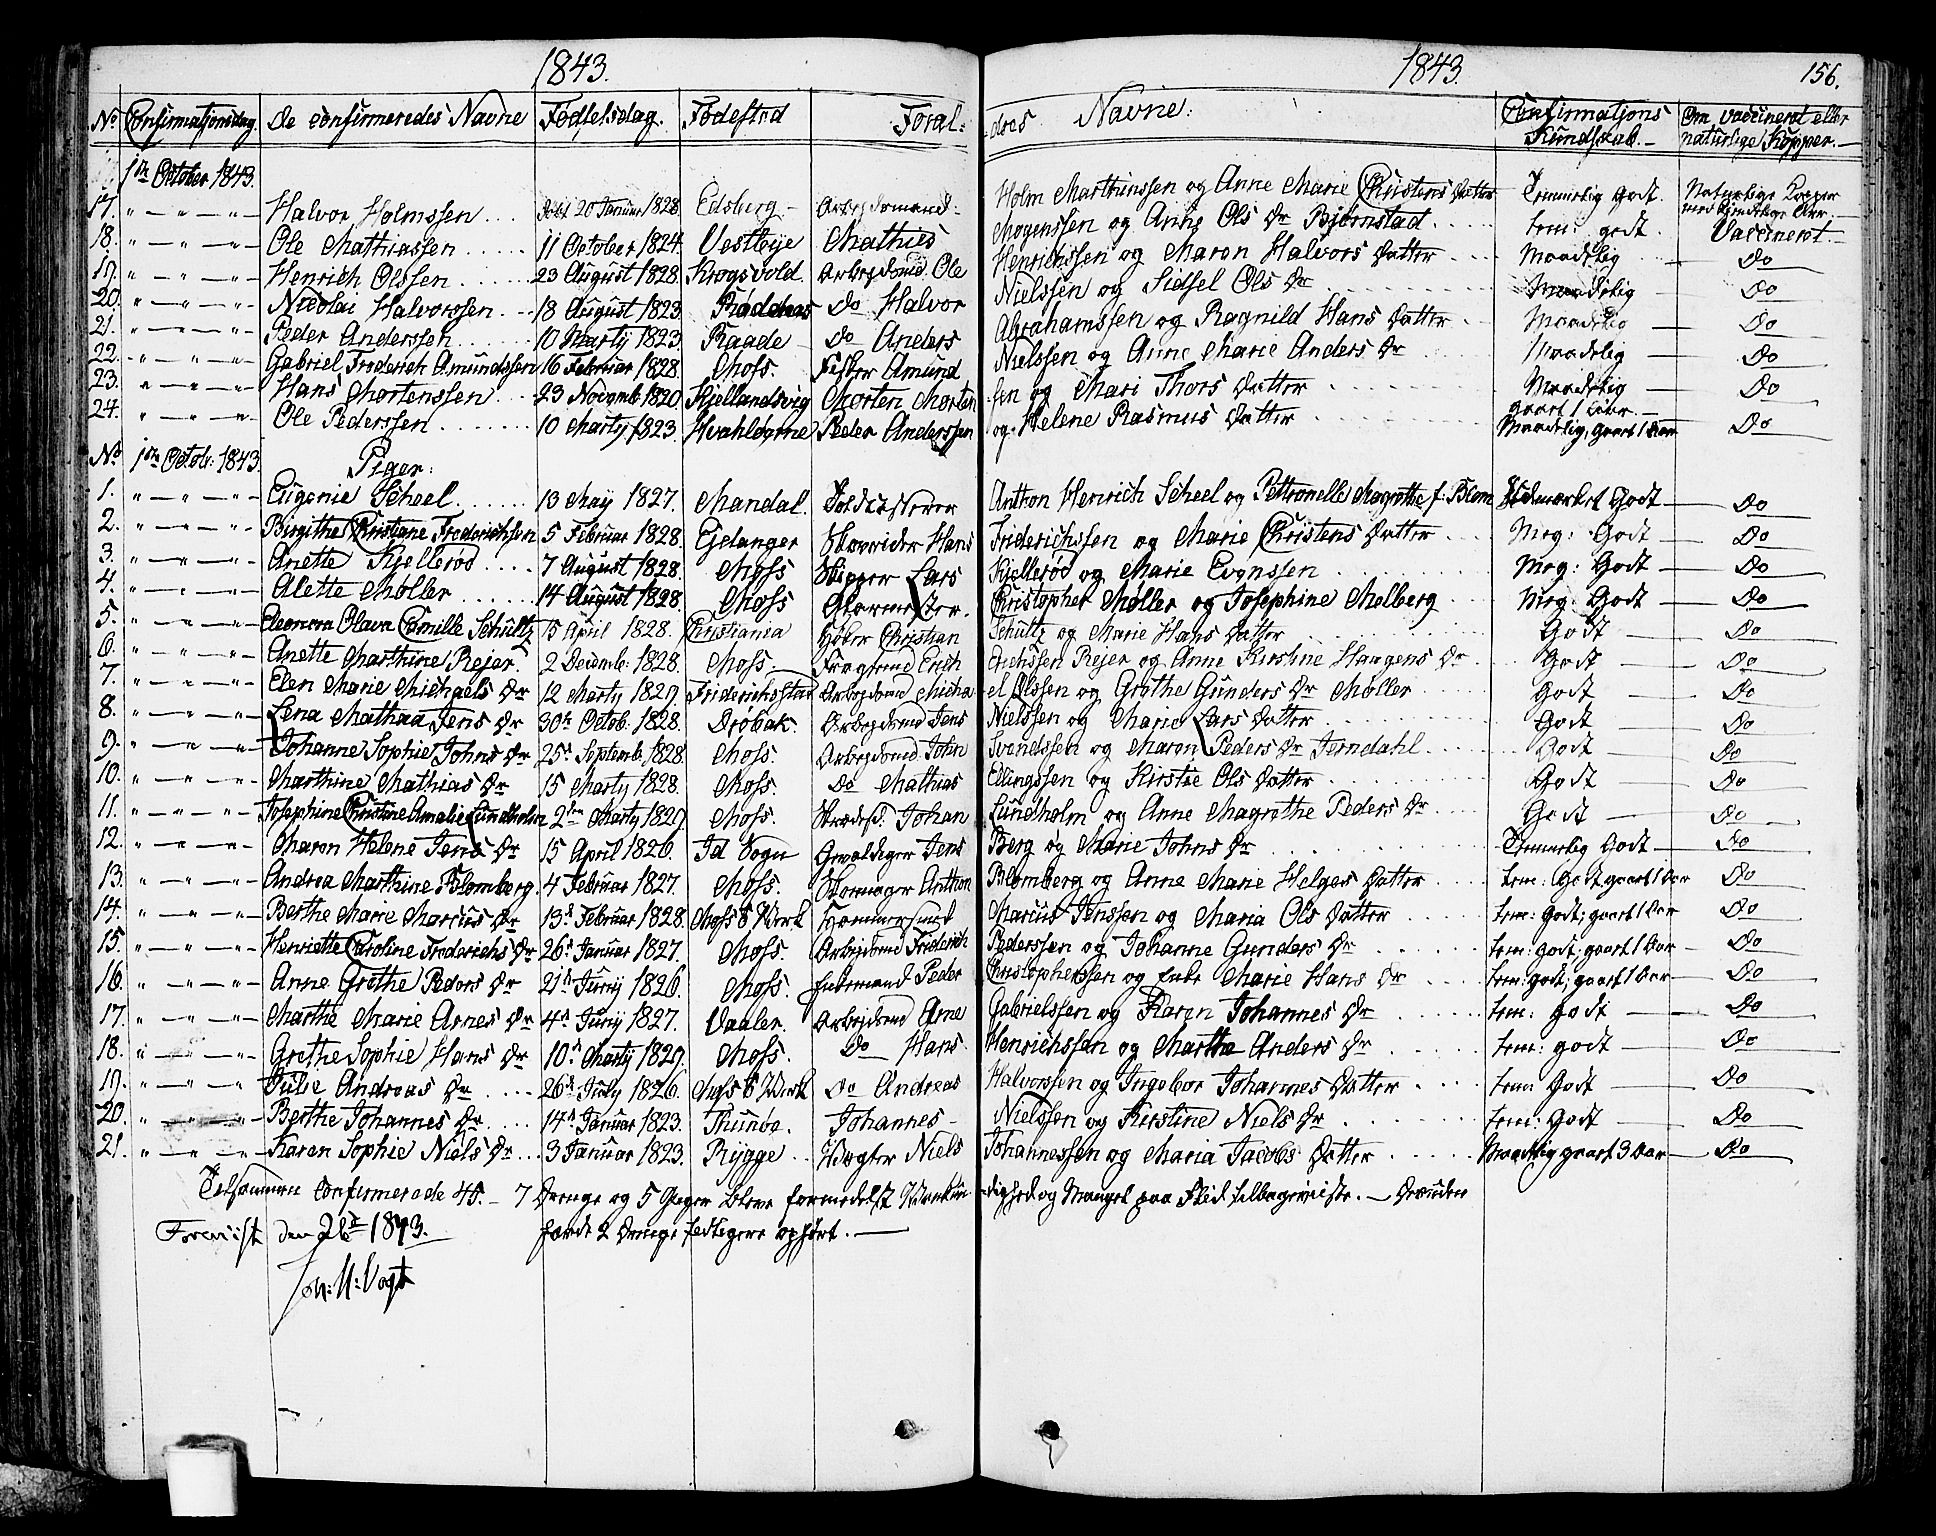 1843. 1843. 156.
No Confirmationsdag. De confirmeredes Navne Fødselsdag. Fødested Foræl: dres Navne: Confirmations Kundskab. Om vaccineret eller naturlige Kopper.
1ste October 1843.
17. Halvor Holmssen 20 Januar 1828. Edsberg Arbejdsmand Holm Marthinssen og Anne Marie Christens Datter Temmelig Godt. Naturlige Kopper
18. Ole Mathiassen 11 October 1824. Vestbye Mathies Mogenssen og Anne Ols Dr Bjørnstad tem: godt. Vaccineret
19. Henrich Olssen 23 August 1828. Krogsvold. Arbejdsmd Ole Henrichssen og Maren Halvors Datter Maadelig Do
20. Nicolai Halvorssen 18 August 1823. Do Halvor Nielssen og Sidsel Ols Dr Maadelig Do
21. Peder Anderssen 10 Marty 1823. Raade Do Anders Abrahamssen og Ragnild Hans Datter Maadelig Do
22. Gabriel Frederich Amundssen 16 Februar 1828. Moss. Fisker Amund Nielssen og Anne Marie Anders Dr Maadelig Do
23. Hans Mortenssen 23 Novemb 1820. Kjellandsvig Morten Morten sen og Mari Thors Datter Maadelig gaaet 1 Aar. Do
24. Ole Pederssen 10 Marty 1823. Hvahløerne Peder Anderssen og Helene Rasmus Datter Maadelig, gaaet 1 Aar Do
No 1ste Octob: 1843. Piger:
1. Eugenie Scheel 13 May 1827. Mandal. Toldcasserer Anthon Henrich Scheel og Pettronelle Magrethe f: Blom Udmærket Godt Do
2. Birgithe Christiane Frederichsen 5 Februar 1828. Ejdanger Skovrider Hans Friderichssen og Marie Christens Datter Meg: Godt Do
3. Anette Kjellerød 7 August 1828. Moss Skipper Lars Kjellerød og Marie Evenssen Meg: Godt Do
4. Alette Møller 14 August 1828. Moss Glarmester. Christopher Møller og Josephine Melberg Meg: Godt Do
5. Eleonora Olava Camille Schultz 15 April 1828. Christiania Christian Schultz og Marie Hans Datter Godt Do
6. Anette Marthine Rejer 2 Decemb: 1828. Moss. Erich Erichssen Rejer og Anne Kirstine Haagens Dr Godt Do
7. Elen Marie Michaels Dr 12 Marty 1829. Friderichsstad Arbejdsmd Micha el Olssen og Grethe Gunders Dr Møller Godt Do
8. Lena Mathea Jens Dr 30te Octob. 1828. Drøbak. Arbejdsmd Jens Nielssen og Marie Lars Datter Godt Do
9. Johanne Sophie Johns Dr 25de Septemb. 1828. Moss. Arbejdsmd John Svendssen og Maren Peders Dr Jerndahl Godt Do
10. Marthine Mathias Dr 15 Marty 1828. Moss. Do Mathias Ellingssen og Kirstie Ols Datter Godt Do
11. Josephine Christine Amalie Lundholm 2den Marty 1829. Moss. Johan Lundholm og Anne Magrethe Peders Dr Godt Do
12. Maren Helene Jens Dr 15 April 1826. Id Sogn Gevaldiger Jens Berg og Marie Johns Dr Temmelig Godt Do
13. Andrea Marthine Blomberg 4 Februar 1827. Moss. Skomager Anthon Blomberg og Anne Marie Helges Datter tem: Godt gaaet 1 Aar Do
14. Berthe Marie Marcus Dr 13de Februar 1828. Moss Værk Hammersmed Marcus Jenssen og Maria Ols Datter tem: godt; gaaet 1 Aar Do
15. Henriette Caroline Frederichs Dr 26de Januar 1827. Moss. Arbejdsmd Friderich Pederssen og Johanne Gunders Dr tem: godt; gaaet 1 Aar Do
16. Anne Grethe Peders Dr 21de Juny 1826. Moss. Peder Christopherssen og Marie Hans Dr tem: godt; gaaet 1 Aar Do
17. Marthe Marie Arnes Dr 4de Juny 1827. Vaaler. Arbejdsmd Arne Gabrielssen og Karen Johannes Dr tem: godt Do
18. Grethe Sophie Hans Dr 10de Marty 1829. Moss. Do Hans Henrichssen og Marthe Anders Dr tem: godt Do
19. Julie Andreas Dr 26de July 1826. Moss Værk Do Andreas Halvorssen og Ingebor Johannes Datter tem Godt Do
20. Berthe Johannes Dr 14de Januar 1823. Thunøe. Johannes Nielssen og Kirstine Niels Dr tem: Godt Do
21. Karen Sophie Niels Dr 3 Januar 1823. Rygge Vægter Niels Johannessen og Maria Jacobs Datter Maadelig gaaet 3 Aar Do
Tilsammen Confirmerede 45. 7 Drenge og 5 Piger bleve formedelst Ukyndighed og Mangel paa Flid tilbageviiste. Desuden
Foreviist den 1843. 2 Drenge
Joh: M: Vogt